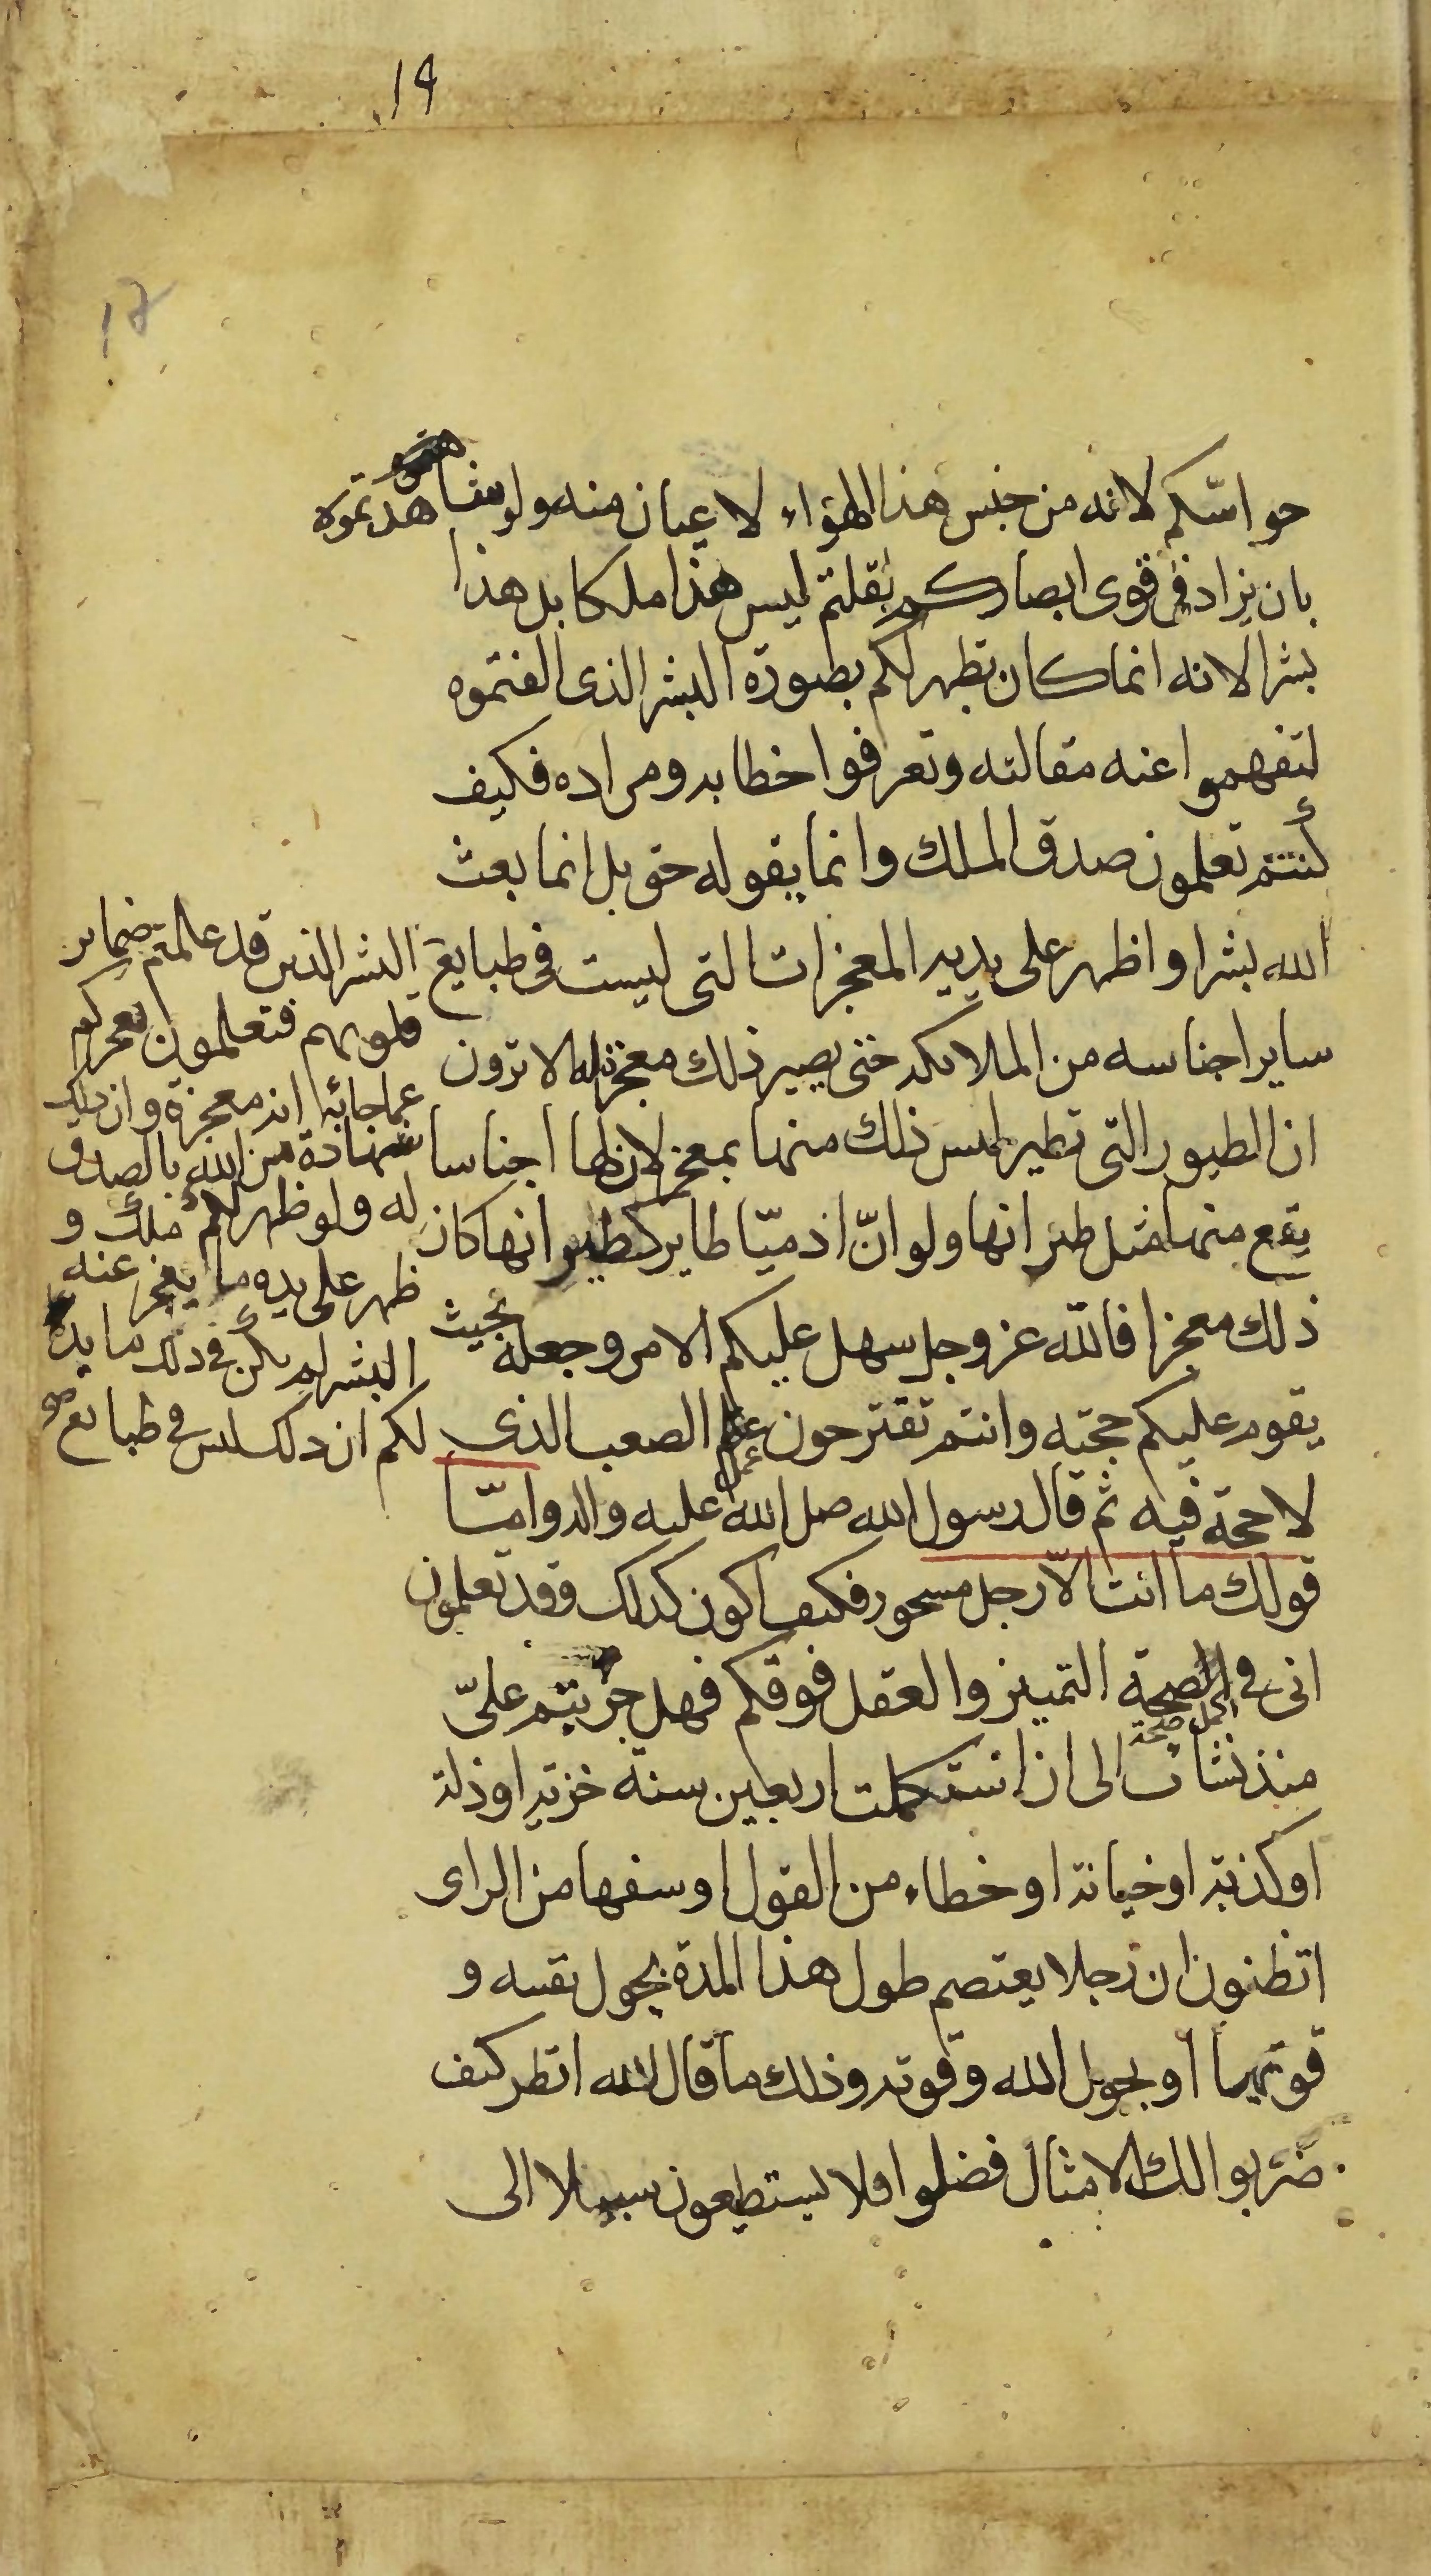 19
17
حواسّكم لانه من جنس هذا الهواء لا عيان منه ولو شاهدتموه
بان يزاد فى قوى ابصاركم لقلتم ليس هذا ملكا بل هذا
بشر الانه انما كان يظهر لكم بصورة البشر الذى الفتموه
لتفهموا عنه مقالته وتعرفوا خطابه ومراده فكيف
كنتم تعلمون صدق الملك وانما يقوله حق بل انما بعث
الله بشرا واظهر على يديه المعجزات التى ليست فى طبايع
ساير اجناسه من الملائكه حتى يصير ذلك معجزة له الا ترون
ان الطيور التى تطير ليس ذلك منها بمعجز لان لها اجناسا
يقع منها مثل طيرانها ولو انّ ادميّا طاير كطيرانها كان
ذلك معجزا فالله عز وجل سهل عليكم الامر وجعله بحيث
يقوم عليكم حجته وانتم تقترحون عمل الصعب الذى
لا حجة فيه ثم قال رسول الله صل الله عليه واله وامّا
قولك ما انت الّا رجل مسحور فكيف اكون كذلك وقد تعلمون
انى فى الصحة التميز والعقل فوقكم فهل جربتم علىّ
صحة
منذ نشات الى ان استكملت اربعين سنة خزية او ذلة
او كذبة او خيانة او خطاء من القول او سفها من الراى
اتظنون ان رجلا يعتصم طول هذا المدة بحول نفسه و
قوتها او بحول الله وقوته وذلك ما قال الله انظر كيف
ضربوا لك الامثال فضلوا فلا يستطيعون سبيلا الى
البشر الذين قد علمتم ضماير
قلوبهم فتعلمون بعجزكم
عما جاء به انه معجزة وان ذلك
شهادة من الله بالصدق
له ولو ظهر لكم ملك و
ظهر على يده ما يعجز عنه
البشر لم يكن فى ذلك ما يدل
لكم ان ذلك ليس فى طبايع صح